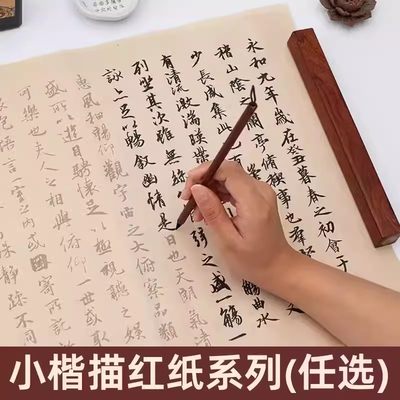 永和九年歲在癸丑暮春之初會于
稽山陰之蘭亭脩禊事也羣
少長咸集此
觴曲水
有清流激湍暎
列坐其次雖無絲
之盛一觴一
詠亦足以暢敘幽情是日也天朗氣清
惠風和暢仰觀宇宙之大俯察品類
盛所以遊目騁懷足以極視聽之娛
可樂也夫人之相與俯仰一世或取
悟言一室之內或因寄所託
殊靜躁不同
小楷描红纸系列(任选)